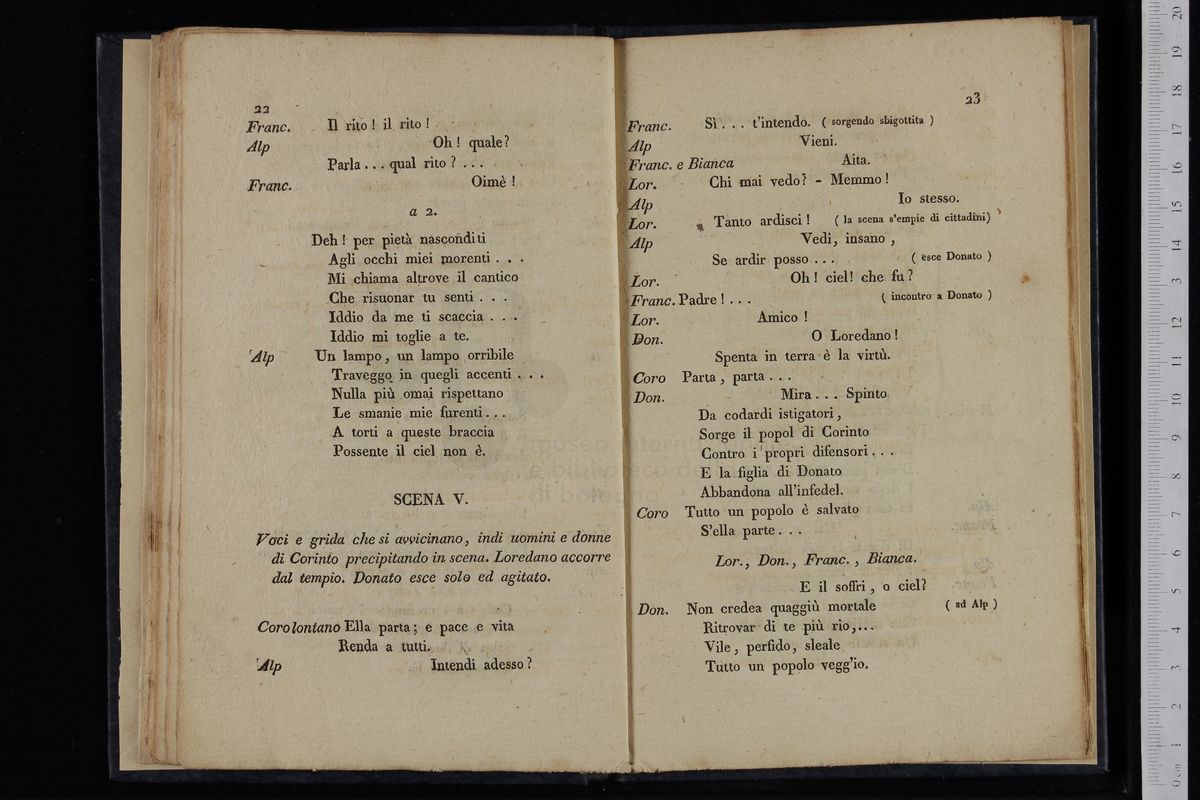 22
Franc. Il rito ! il rito !
Alp Oh ! quale?
Parla . . . qual rito ? . . .
Franc. Oimè !
a 2.
Deh ! per pietà nasconditi
Agli occhi miei morenti . . .
Mi chiama altrove il cantico
Che risuonar tu senti . . .
Iddio da me ti scaccia . . .
Iddio mi toglie a te.
Alp Un lampo , un lampo orribile
Traveggo in quegli accenti . . .
Nulla più omai rispettano
Le smanie mie furenti . . .
A torti a queste braccia
Possente il ciel non è.
SCENA V.
Voci e grida che si avvicinano, indi uomini e donne
di Corinto precipitando in scena. Loredano accorre
dal tempio. Donato esce solo ed agitato.
Coro lontano Ella parta ; e pace e vita
Renda a tutti.
Alp Intendi adesso ?
23
Franc. Sì . . . t'intendo. ( sorgendo sbigottita )
Alp Vieni.
Franc. e Bianca Aita.
Lor. Chi mai vedo? - Memmo !
Alp Io stesso.
Lor. Tanto ardisci ! ( la scena s'empie di cittadini)
Alp Vedi, insano ,
Se ardir posso . . . ( esce Donato )
Lor. Oh ! ciel! che fu ?
Franc. Padre ! . . . ( incontro a Donato )
Lor. Amico !
Don. O Loredano !
Spenta in terra è la virtù.
Coro Parta , parta . . .
Don. Mira . . . Spinto
Da codardi istigatori ,
Sorge il popol di Corinto
Contro i propri difensori . . .
E la figlia di Donato
Abbandona all'infedel.
Coro Tutto un popolo è salvato
S'ella parte . . .
Lor., Don., Franc. , Bianca.
E il soffri , o ciel?
Don. Non credea quaggiù mortale ( ad Alp )
Ritrovar di te più rio,...
Vile , perfido , sleale
Tutto un popolo vegg'io.
museo interna
e biblioteca de
di bologna
0 cm 1 2 3 4 5 6 7 8 9 10 11 12 13 14 15 16 17 18 19 20